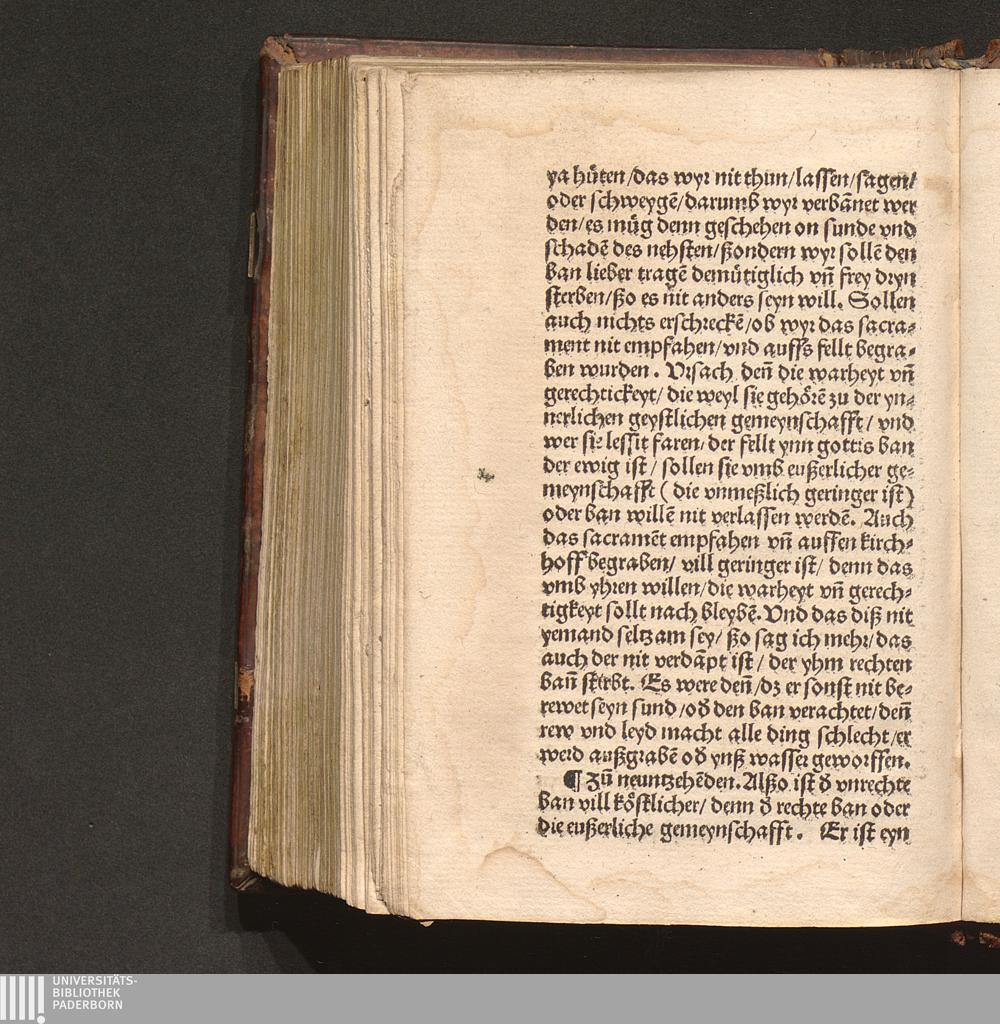 ya hůten/das wyr nit thun/lassen/sagen/
oder schweygē/darumb wyr verbānet wer
den/es můg denn geschehen on sunde vnd
schadē des nehsten/ßondern wyr sollē den
ban lieber tragē demůtiglich vn̄ frey dryn
sterben/ßo es nit anders seyn will. Sollen
auch nichts erschreckē/ob wyr das sacra-
ment nit empfahen/vnd auffs fellt begra-
ben wurden. Vrsach den̄ die warheyt vn̄
gerechtickeyt/die weyl sie gehörē zu der yn-
nerlichen geystlichen gemeynschafft/vnd
wer sie lessit faren/der fellt ynn gottis ban
der ewig ist/sollen sie vmb eußerlicher ge-
meynschafft (die vnmeßlich geringer ist)
oder ban willē nit verlassen werdē. Auch
das sacramēt empfahen vn̄ auffen kirch-
hoff begraben/vill geringer ist/denn das
vmb yhren willen/die warheyt vn̄ gerech-
tigkeyt sollt nach bleybē. Vnd das diß nit
yemand seltzam sey/ßo sag ich mehr/das
auch der nit verdāpt ist/der yhm rechten
ban̄ stirbt. Es were den̄/dz er sonst nit be-
rewet seyn sund/od̓ den ban verachtet/den̄
rew vnd leyd macht alle ding schlecht/er
werd außgrabē od̓ ynß wasser geworffen.
¶ Zū neuntzehēden. Alßo ist d̓ vnrechte
ban vill köstlicher/denn d̓ rechte ban oder
die eußerliche gemeynschafft. Er ist eyn
UNIVERSITÄTS-
BIBLIOTHEK
PADERBORN